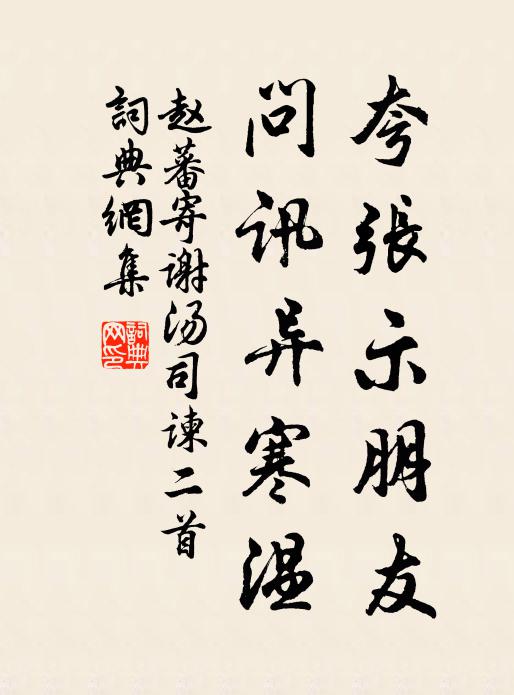 夸張示朋友
問訊异寒温
赵蕃寄谢汤司諫二首
詞典網集
詞典网印